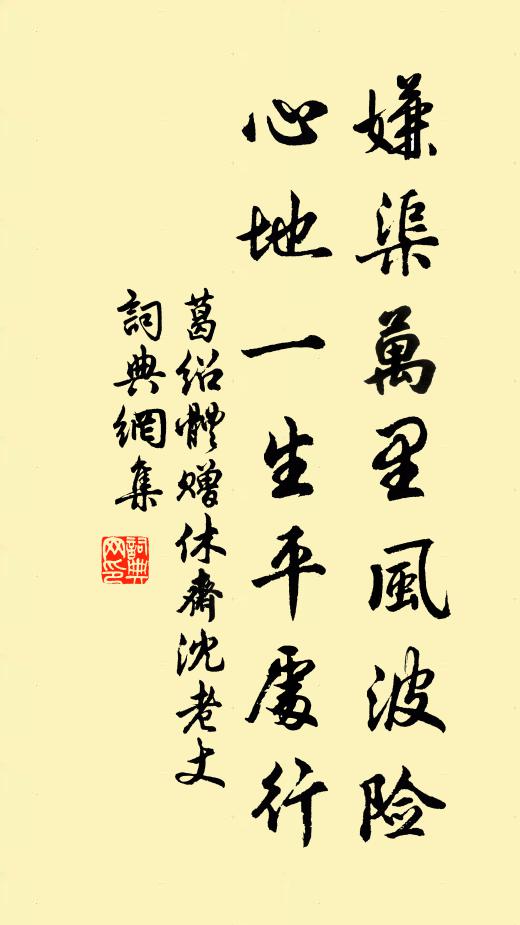 嫌渠萬里風波险
心地一生平處行
葛绍體赠休齋沈老丈
詞典網集
詞典网印